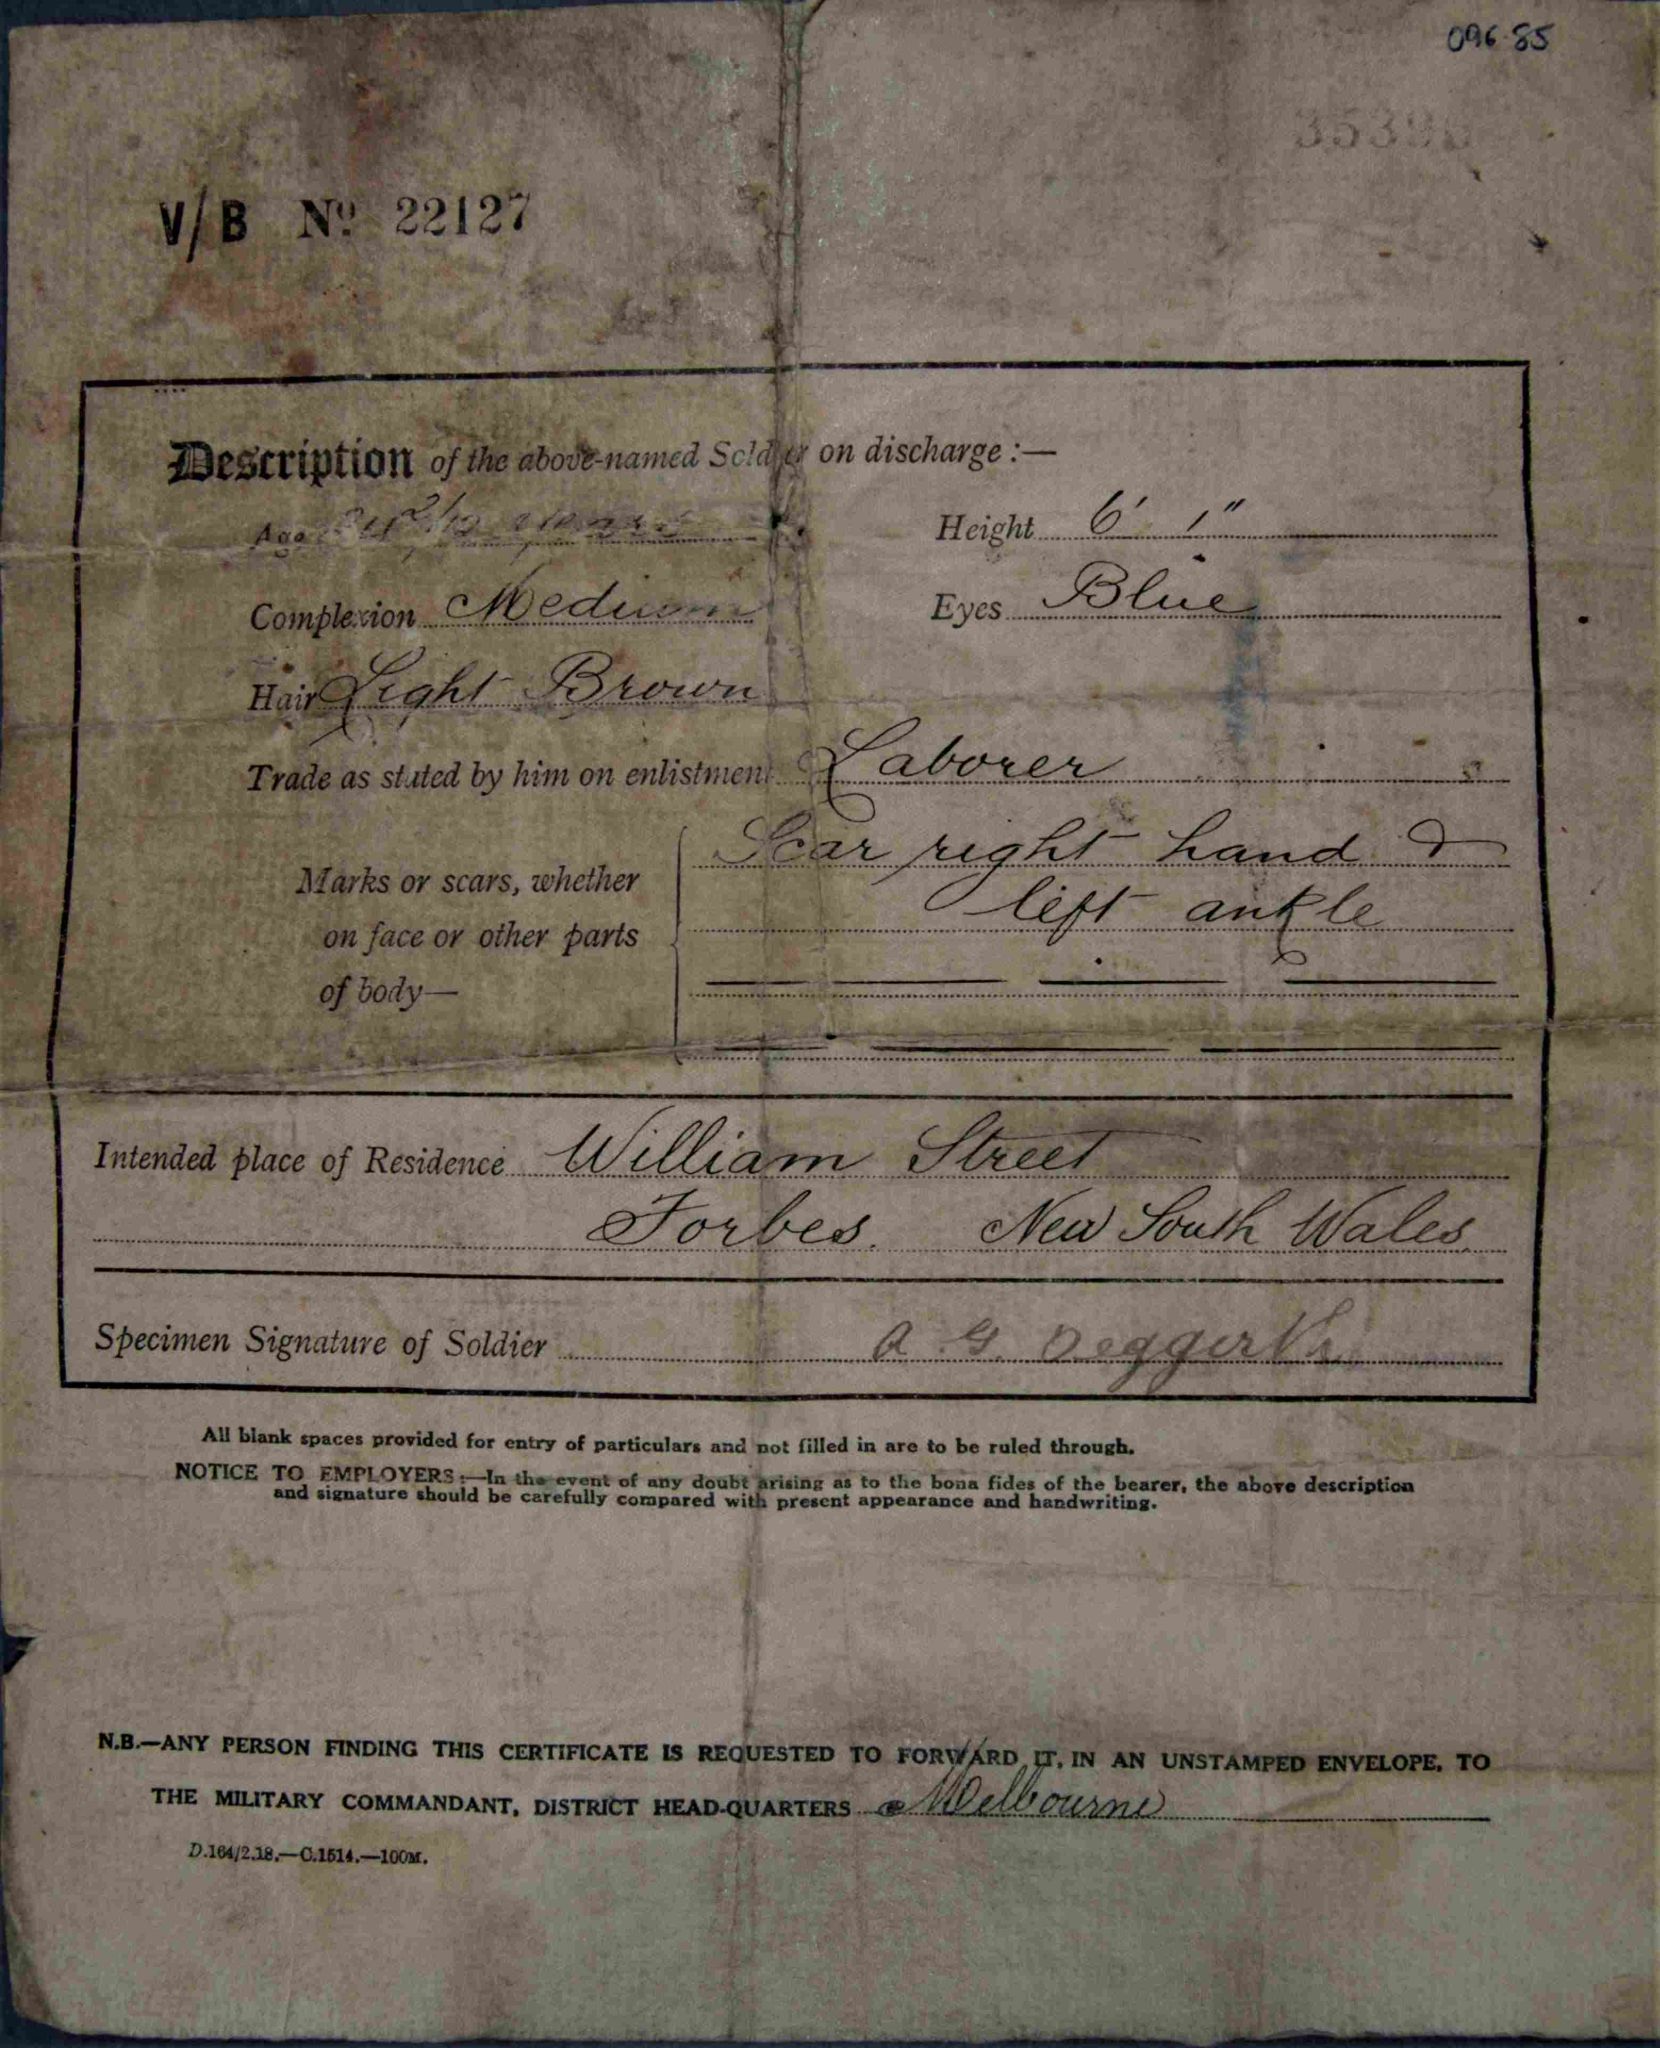 096.85
V/B No. 22127
Description of the above-named Soldier on discharge :—
Age years
Height 6' 1"
Complexion Medium
Eyes Blue
Hair Light Brown
Trade as stated by him on enlistment Laborer
Marks or scars, whether on face or other parts of body—
Scar right hand &
left ankle
Intended place of Residence William Street
Forbes. New South Wales
Specimen Signature of Soldier A. G.
All blank spaces provided for entry of particulars and not filled in are to be ruled through.
NOTICE TO EMPLOYERS :—In the event of any doubt arising as to the bona fides of the bearer, the above description
and signature should be carefully compared with present appearance and handwriting.
N.B.—ANY PERSON FINDING THIS CERTIFICATE IS REQUESTED TO FORWARD IT, IN AN UNSTAMPED ENVELOPE, TO
THE MILITARY COMMANDANT, DISTRICT HEAD-QUARTERS Melbourne
D.164/2.18.—C.1514.—100M.